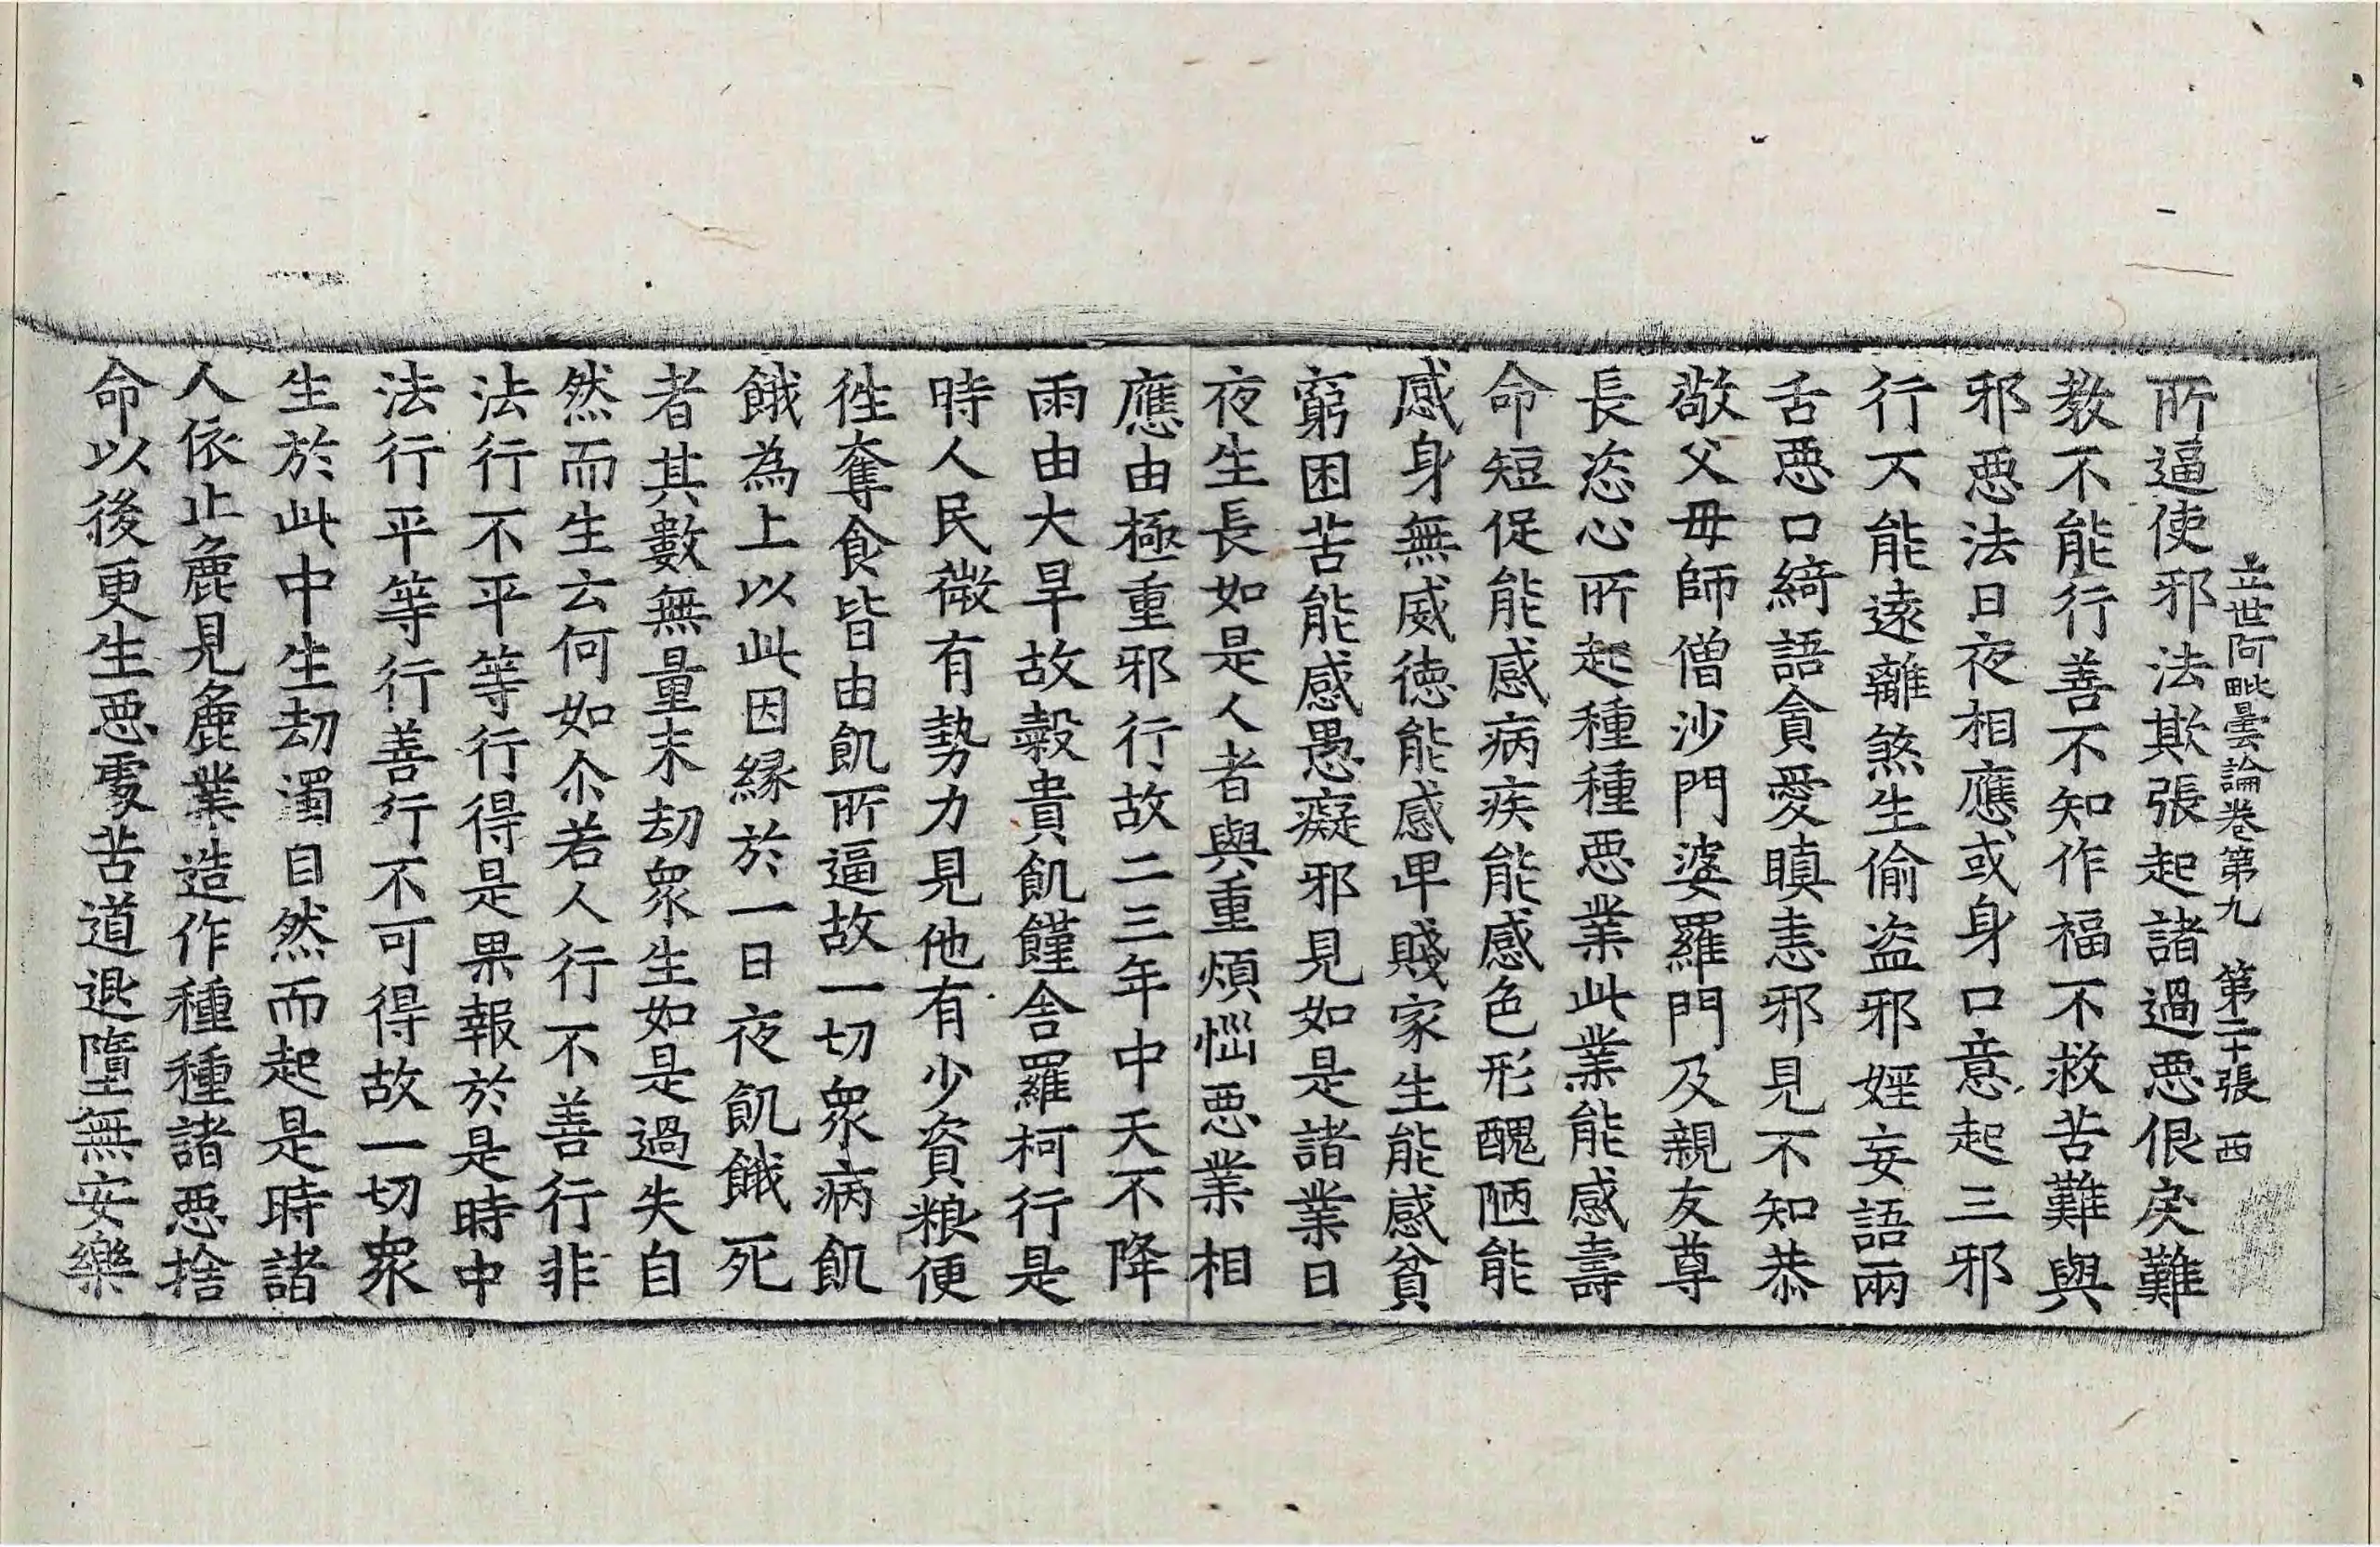 立世阿毗曇論卷第九 第二十張 西
所逼使邪法欺張起諸過惡佷戾難
教不能行善不知作福不救苦難與
邪惡法日夜相應或身口意起三邪
行不能遠離煞生偷盗邪婬妄語兩
舌惡口綺語貪愛瞋恚邪見不知恭
敬父母師僧沙門婆羅門及親友尊
長恣心所起種種惡業此業能感壽
命短促能感病疾能感色形醜陋能
感身無威德能感卑賤家生能感貧
窮困苦能感愚癡邪見如是諸業日
夜生長如是人者與重煩惱惡業相
應由極重邪行故二三年中天不降
雨由大旱故穀貴飢饉舍羅柯行是
時人民微有勢力見他有少資粮便
徃奪食皆由飢所逼故一切衆病飢
餓為上以此因縁於一日夜飢餓死
者其數無量末劫衆生如是過失自
然而生云何如尒若人行不善行非
法行不平等行得是果報於是時中
法行平等行善行不可得故一切衆
生於此中生劫濁自然而起是時諸
人依止麁見麁業造作種種諸惡捨
命以後更生惡處苦道退墮無安樂